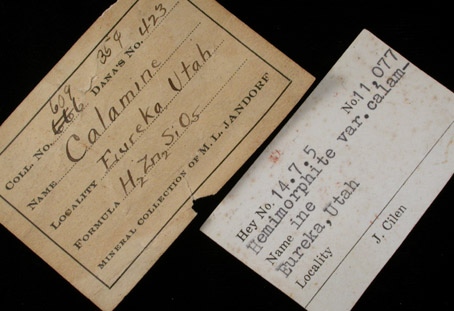 COLL. No. 609 DANA'S No. 423
NAME Calamine
LOCALITY Eureka Utah
FORMULA H2Zn2SiO5
MINERAL COLLECTION OF M. L. JANDORF
Hey No. 14.7.5 No. 11,077
Hemimorphite var. calam-
Name ine
Eureka, Utah
Locality
J. Cilen